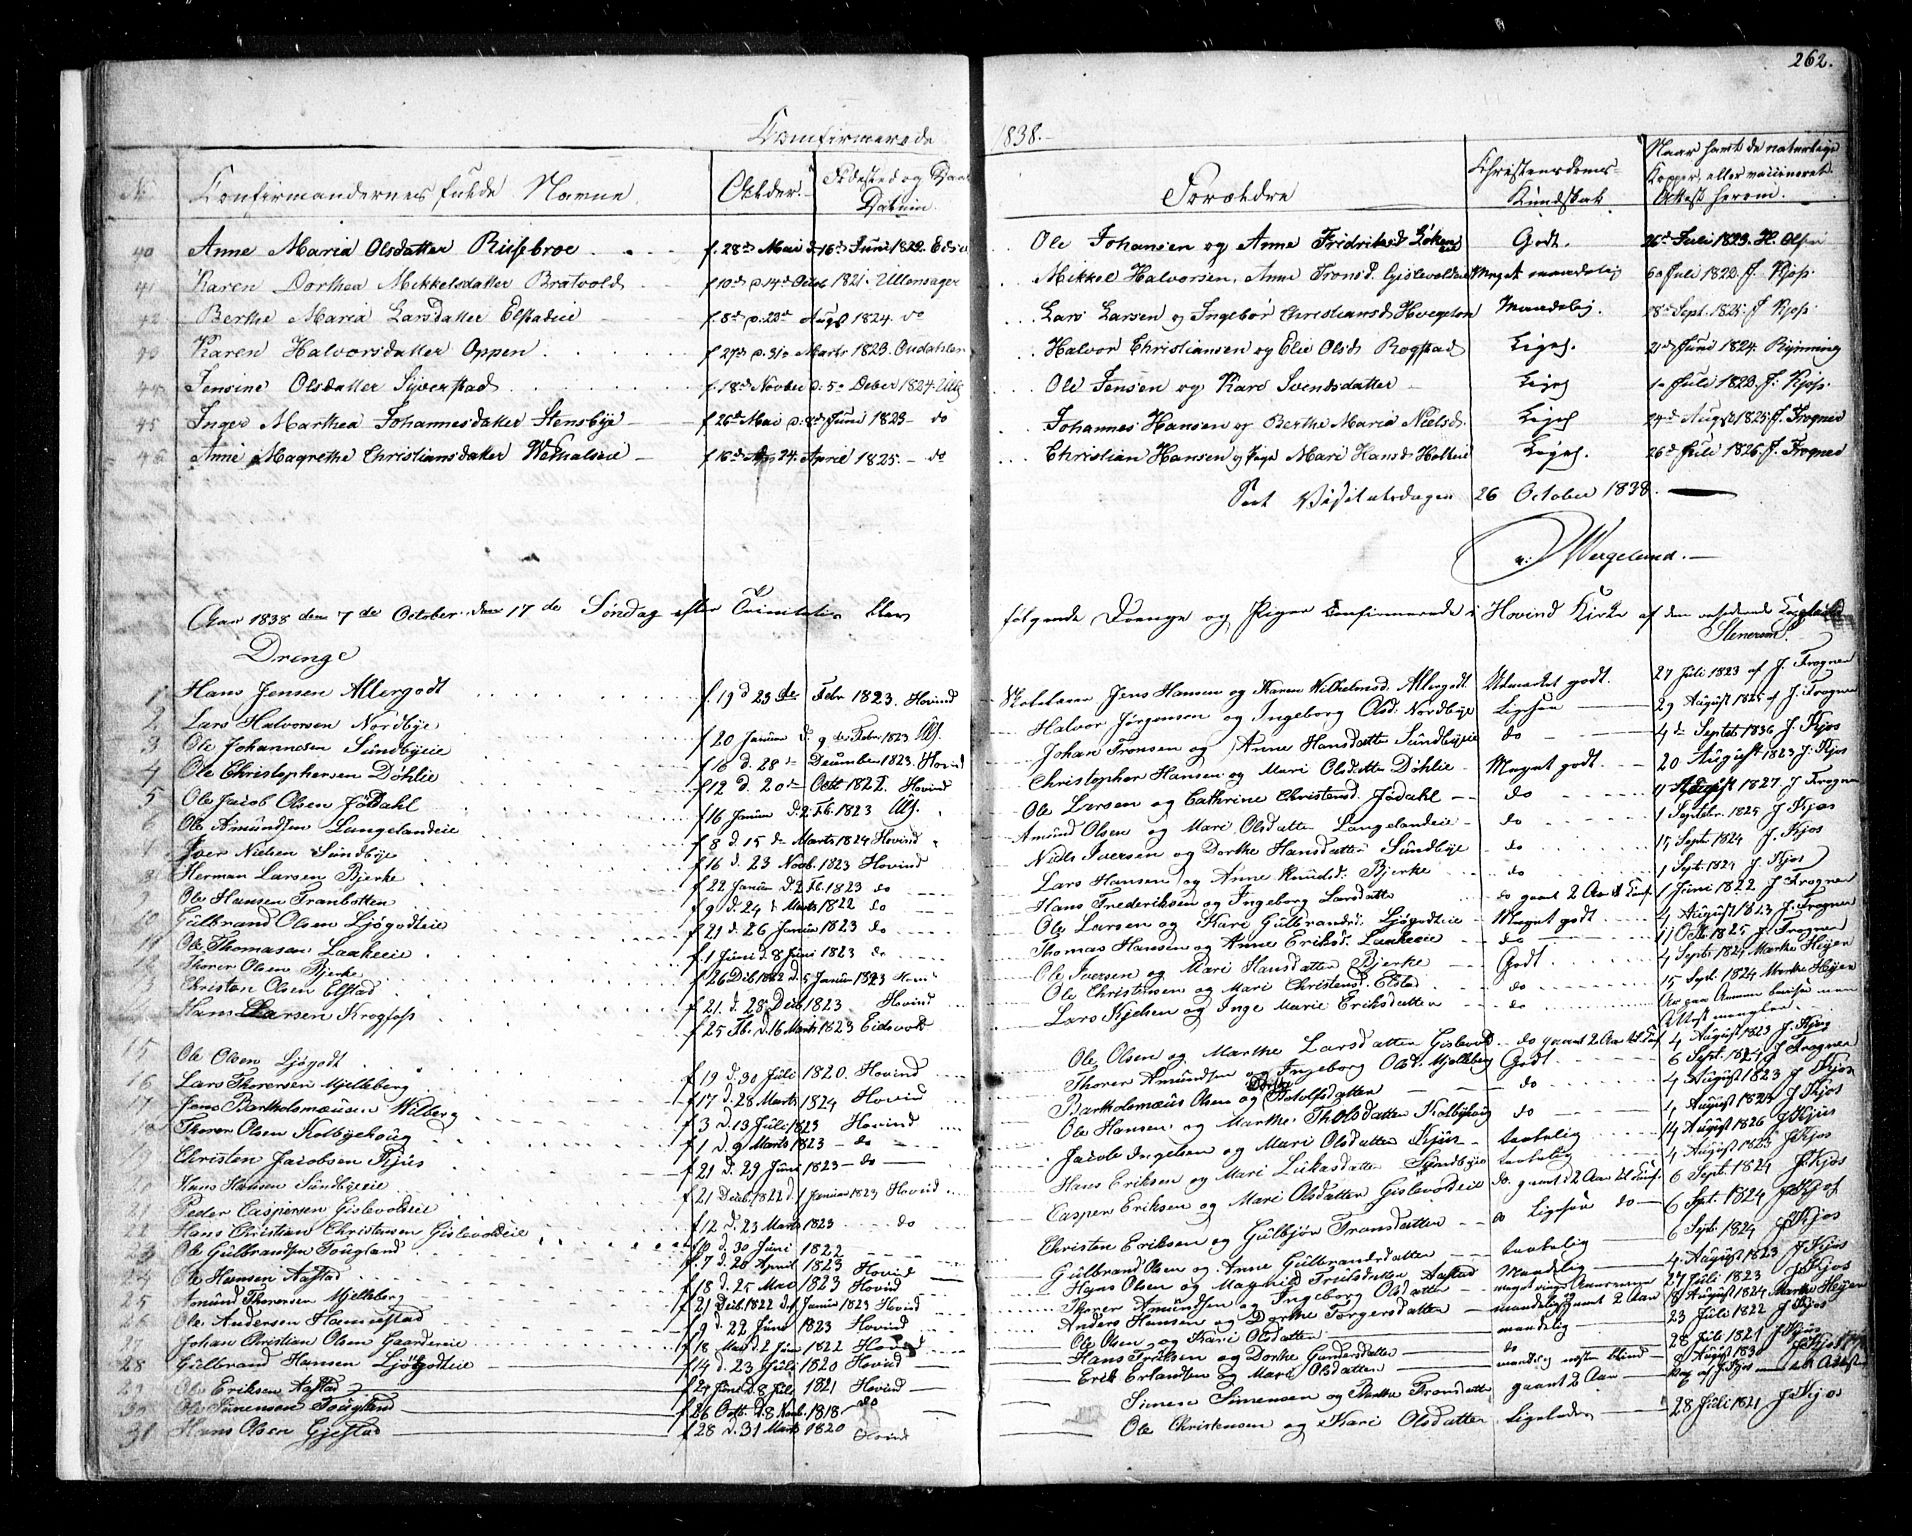 262.
Confirmerede 1838.
No Confirmandernes fulde Navne Alder Fødested og Daabs Datum. Forældre Christendoms Kundskab Naar havt de naturlige Kopper, eller vaccineret. Attest herom.
40 Anne Maria Olsdatter Risebroe f. 28de Mai d. 16de Juni 1822. Ole Johansen og Anne Fridriksd Godt. 26de Juli 1823. H. Olsen
41 Karen Dorthea Mikkelsdatter Bratvold f. 10de d. 14de Octob 1821. Ullensager Mikkel Halvorsen, Anne Tronsd. Meget maadelig 6de Juli 1823. J. Kjos.
42 Berthe Maria Larsdatter Elstadeie f. 8de d. 22de Augs 1824. do Lars Larsen og Ingebor Christiansd Maadelig. 28de Sept. 1825. J Kjos
43 Karen Halvorsdatter Oppen f. 27de d. 31te Marts 1823. Halvor Christiansen og Elie Olsd. Rogstad Liges. 21de Juni 1824. Rynning
44 Jensine Olsdatter Syverstad f. 18de Novbr d. 5te Decber 1824. Ulls Ole Jensen og Kari Svendsdatter Liges 1te Juli 1823. J. Kjos.
45 Inger Marthea Johannesdatter Stensbye f. 26de Mai d. 8de Juni 1823 do Johannes Hansen og Berthe Maria Nielsd. Liges 24de August 1825. J. Trogner
46 Anne Magrethe Christiansdatter f. 16de d. 24. April 1825. do Christian Hansen og Mari Hansd. Liges. 26de Juli 1826. J. Trogner
Seet Visitatsdagen 26 October 1838.
N. Wergeland.
Aar 1838 den 7de October den 17de Søndag efter Trinitatis blev følgende Drenge og Piger confirmerede i Hovind Kirke af den residerende Kapellan Stenersen.
Drenge
1 Hans Jensen Allergodt f. 19 d 23de Febr 1823 Hovind Jens Hansen og Karen Wilhelmsd. Allergodt Udmærket godt. 27 Juli 1823 af J. Trogner
2 Lars Halvorsen Nordbye f 20 Januar d. 9de Febr 1823 Ull. Halvor Jørgensen og Ingeborg Olsd. Nordbye Ligesaa 29 August 1825 af J. Trogner
3 Ole Johannesen Sundbyeie f 16 d. 28de December 1823. Hovind Johan Tronsen og Anne Hansdatter Sundbyeie do 4de Septeb 1836 J. Kjos
4 Ole Christophersen Døhlie f 12 d. 20de Octbr 1822. Hovind Christopher Hansen og Mari Olsdatter Døhlie Meget godt. 20 August 1823 J. Kjos
5 Ole Jacob Olsen Jødahl f 16 Januar d. 2 Feb. 1823 Ull. Ole Larsen og Cathrine Christensd. Jødahl do 4 August 1827 J Trogner
6 Ole Amundsen Langelandeie f 8 d. 15de Marts 1824 Hovind Amund Olsen og Mari Olsdatter Langelandeie do 1 Septebr. 1825 J Kjos
Iver Nielsen Sundbye f 16 d. 23 Novb. 1823 Hovind Niels Iversen og Dorthe Hansdatter Sundbye do 15 Septr 1824 J. Kjos
8 Herman Larsen Bjerke f 22 Januar d. 2 Fb. 1823 do Lars Hansen og Anne Knudsd. Bjerke do 1 Sept. 1824 J. Kjos
9 Ole Hansen Tranbotten f 9 d. 24 Marts 1822 do Hans Frederiksen og Ingeborg Larsdatter do gaaet 2 Aar til Conf. 1 Juni 1822 J Trogner
10 Gulbrand Olsen Ljøgodteie f 21 d. 26 Januar 1823 do Ole Larsen og Kari Gulbrandsd. Ljøgodteie Meget godt 4 August 1823 J. Trogner
11 Ole Thomasen Laakeeie f. 1 Juni d. 8 Juni 1823 do Thomas Hansen og Anne Eriksd. Laakeeie do 11 Oct. 1825 J. Trogner
12 Thorer Olsen Bjerke f 26 Deb. 1822 d. 5 Januar 1823 Hovi Ole Iversen og Mari Hansdatter Bjerke Godt 4 Sept. 1824 Marthe Heyer
13 Christen Olsen Elstad f. 21. d. 28 Deb. 1823 Hovind Ole Christensen og Mari Christensd. Elstad do 15 Sept. 1824 Marthe Heyer
Hans Larsen Krogfoss f 25 Fb. d. 16 Marts 1823 Eidsvold Lars Kjelsen og Inge Marie Eriksdatter do Attest mangler.
15 Ole Olsen Ljøgodt f 19 d. 30 Juli 1820. Hovind Ole Olsen og Marthe Larsdatter Gislevold do gaaet 2 Aar til Conf. 4 August 1823 J. Kjos
16 Lars Thorersen Mjelleberg f 17 d. 28 Marts 1824 Hovind Thorer Amundsen og Ingeborg Olsd. Mjelleberg Godt 6 Sept. 1824 J Trogner
17 Jens Bartholomæusen Wilberg f 3 d. 13 Juli 1823 Hovind Bartholomæus Olsen og Dorthe Botolfsdatter do 4 August 1823 J Kjos
Thorer Olsen Kolbyehoug f 1 d. 9 Marts 1823 do Ole Hansen og Marthe Tholsdatter Kolbyehoug do 14 August 1824 J Kjos
19 Christen Jacobsen Kjus f 21 d. 29 Juni 1823 do Jacob Ingelsen og Mari Olsdatter Kjus taalelig 14 August 1826 J Kjos
20 Hans Hansen Sundbyeie f 21 Decb. 1822 d. 1 Januar 1823 Hovind Hans Eriksen og Mari Lukasdatter Sundbyeie taalelig 4 August 1823 J. Kjos
21 Peder Caspersen Gislevoldeie f 12 d. 23 Marts 1823 do Casper Eriksen og Mari Olsdatter Gislevoldeie do. gaaet 2 Aar til Conf. 6 Sept. 1824 J Kjos
22 Hans Christian Christensen Gislevoldeie f 9 d. 30 Juni 1822 Christen Eriksen og Gulbjør Tronsdatter do Ligesaa do 6 Sept. 1824 J Kjos
23 Ole Gulbrandsen Tougland f 7 d. 20 April 1823 Hovind Gulbrand Olsen og Anne Gulbrandsdatter taalelig 6 Sept. 1824 J Kjos
24 Ole Hansen Aastad f 18 d. 25 Mai 1823 Hovind Hans Olsen og Magnild Trulsdatter Aastad Maadelig 4 August 1823 J Kjos
25 Amund Thorersen Mjelleberg f 21 Decb. 1822 d. 1 Januar 1823 Hovind Thorer Amundsen og Ingeborg Olsdatter 27 Juli 1823 J Kjos
26 Ole Andersen Hammerstad f 9 d. 22 Juni 1823 Hovind Anders Hansen og Dorthe Torgersdatter maadelig gaaet 2 Aar August 1824 Marthe Heyer
27 Johan Christian Olsen Gaardereie f 18 Mai d. 2 Juni 1822 Hovind Ole Olsen og Kari Olsdatter maadelig 23 Juli 1822 J Kjos
28 Gulbrand Hansen Ljøgodteie f 14 d. 23 Juli 1820 Hovind Hans Eriksen og Dorthe Gundersdatter do 28 Juli 1821 J Kjos
29 Ole Eriksen Aastad f 24 Juni d. 8 Juli 1821 Hovind Erik Erlandsen og Mari Olsdatter maadelig næsten blind 8 August 1830
30 Ole Simensen Tougland f 26 Octb. d. 8 Novb. 1818 do Simen Simensen og Marthe Tronsdatter gaaet 2 Aar
31 Hans Olsen Gjestad f 28 d. 31 Marts 1820 Hovind Ole Christensen og Kari Olsdatter Ligeledes 28 Juli 1821 J Kjos